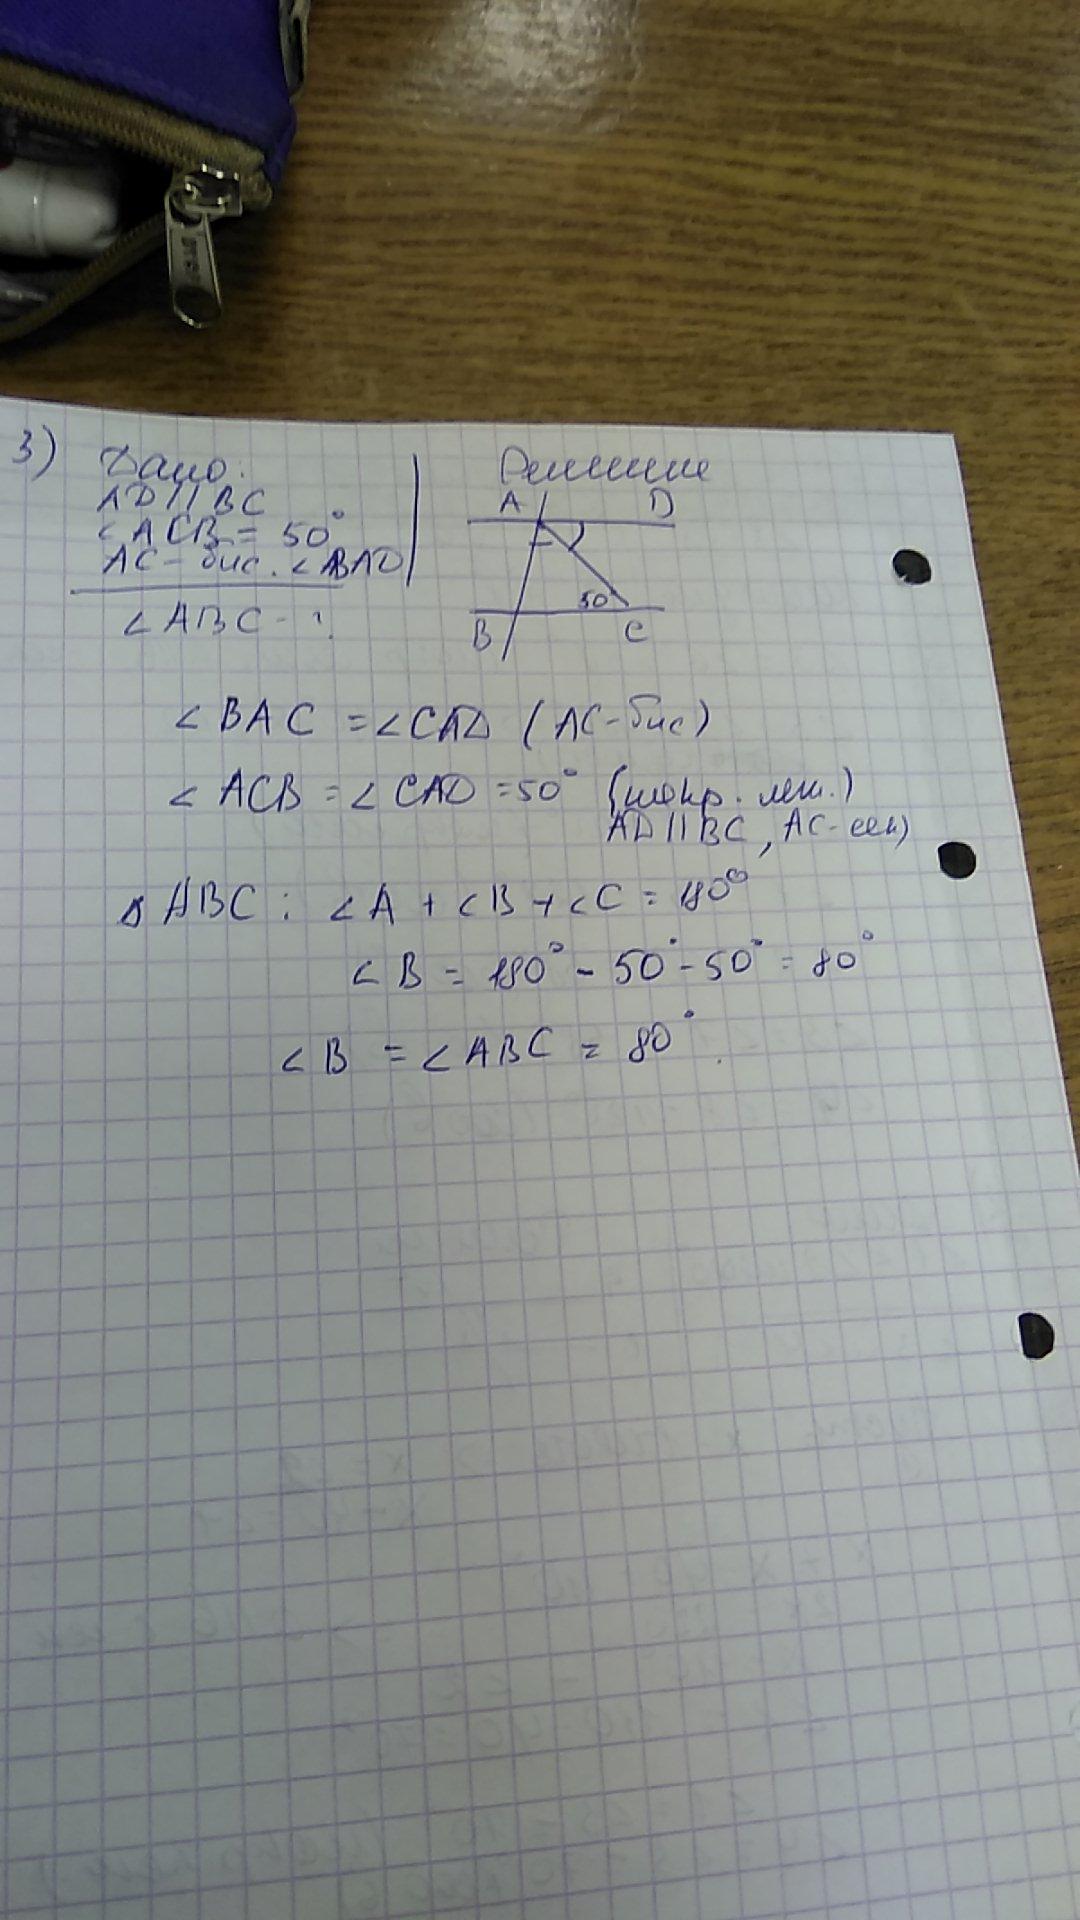 3) Дано:
AD || BC
∠ACB = 50°
AC - бис. ∠BAD
∠ABC - ?
Решение
A D
50
B C
∠BAC = ∠CAD (AC-бис)
∠ACB = ∠CAD = 50° (накр. леж.)
AD || BC, AC-сек)
△ABC: ∠A + ∠B + ∠C = 180°
∠B = 180° - 50° - 50° = 80°
∠B = ∠ABC = 80°.